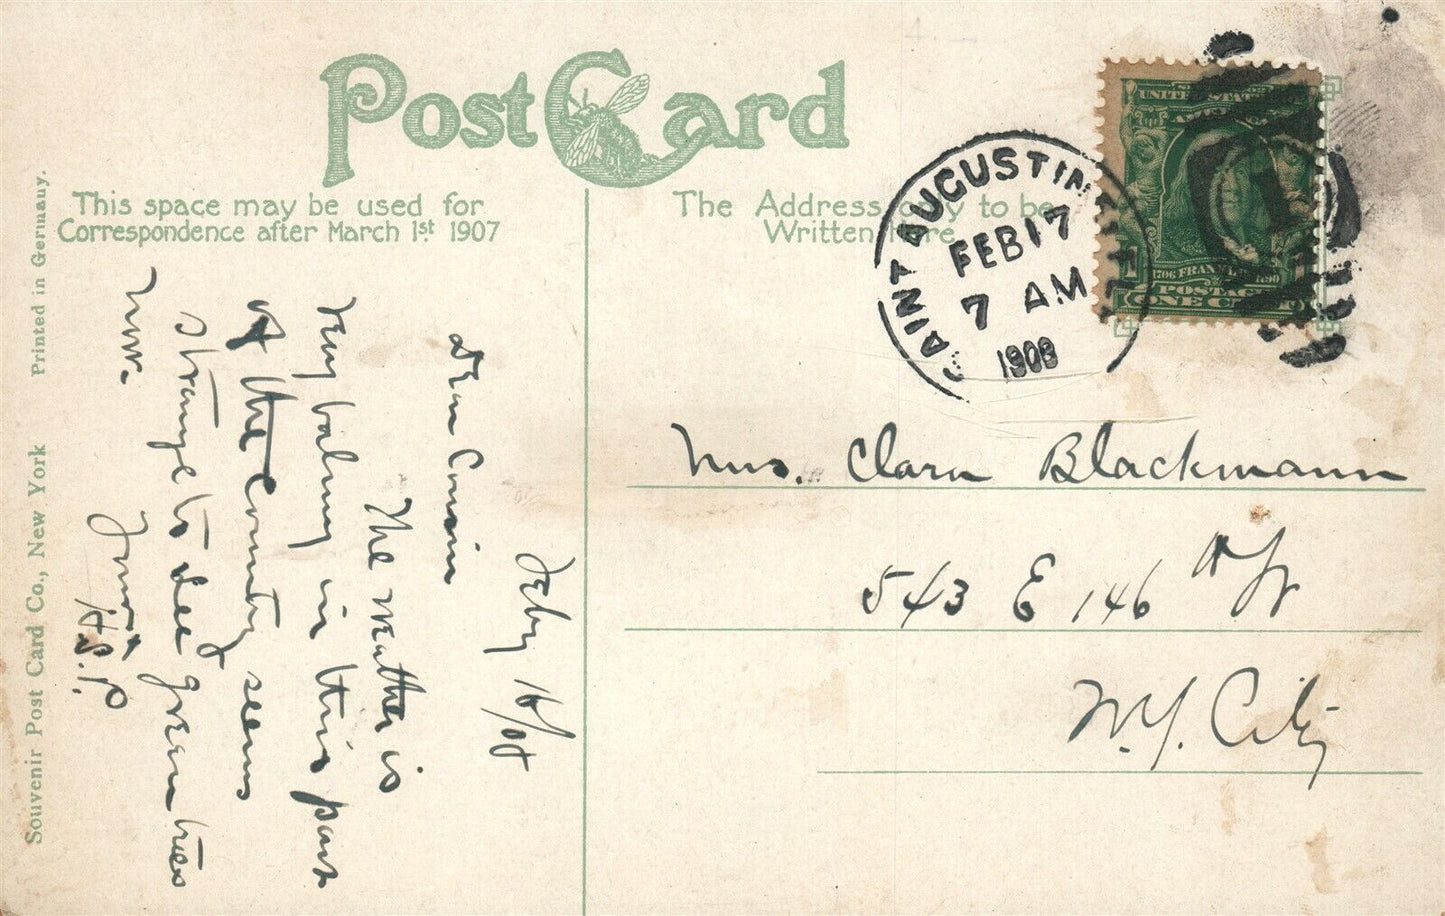 Post Card
This space may be used for
Correspondence after March 1st 1907
The Address only to be
Written here
SAINT AUGUSTINE, FLA.
FEB 17
7 AM
1908
UNITED STATES OF
AMERICA
1706 FRANKLIN 1790
POSTAGE
ONE CENT
1
Mrs. Clara Blackmann
543 E 146th St
N.Y. City
Feby 16/08
Dear Cousin
The weather is
very balmy in this part
of the country seems
strange to see green trees
now.
Yours
H.S.P.
Souvenir Post Card Co., New York
Printed in Germany.